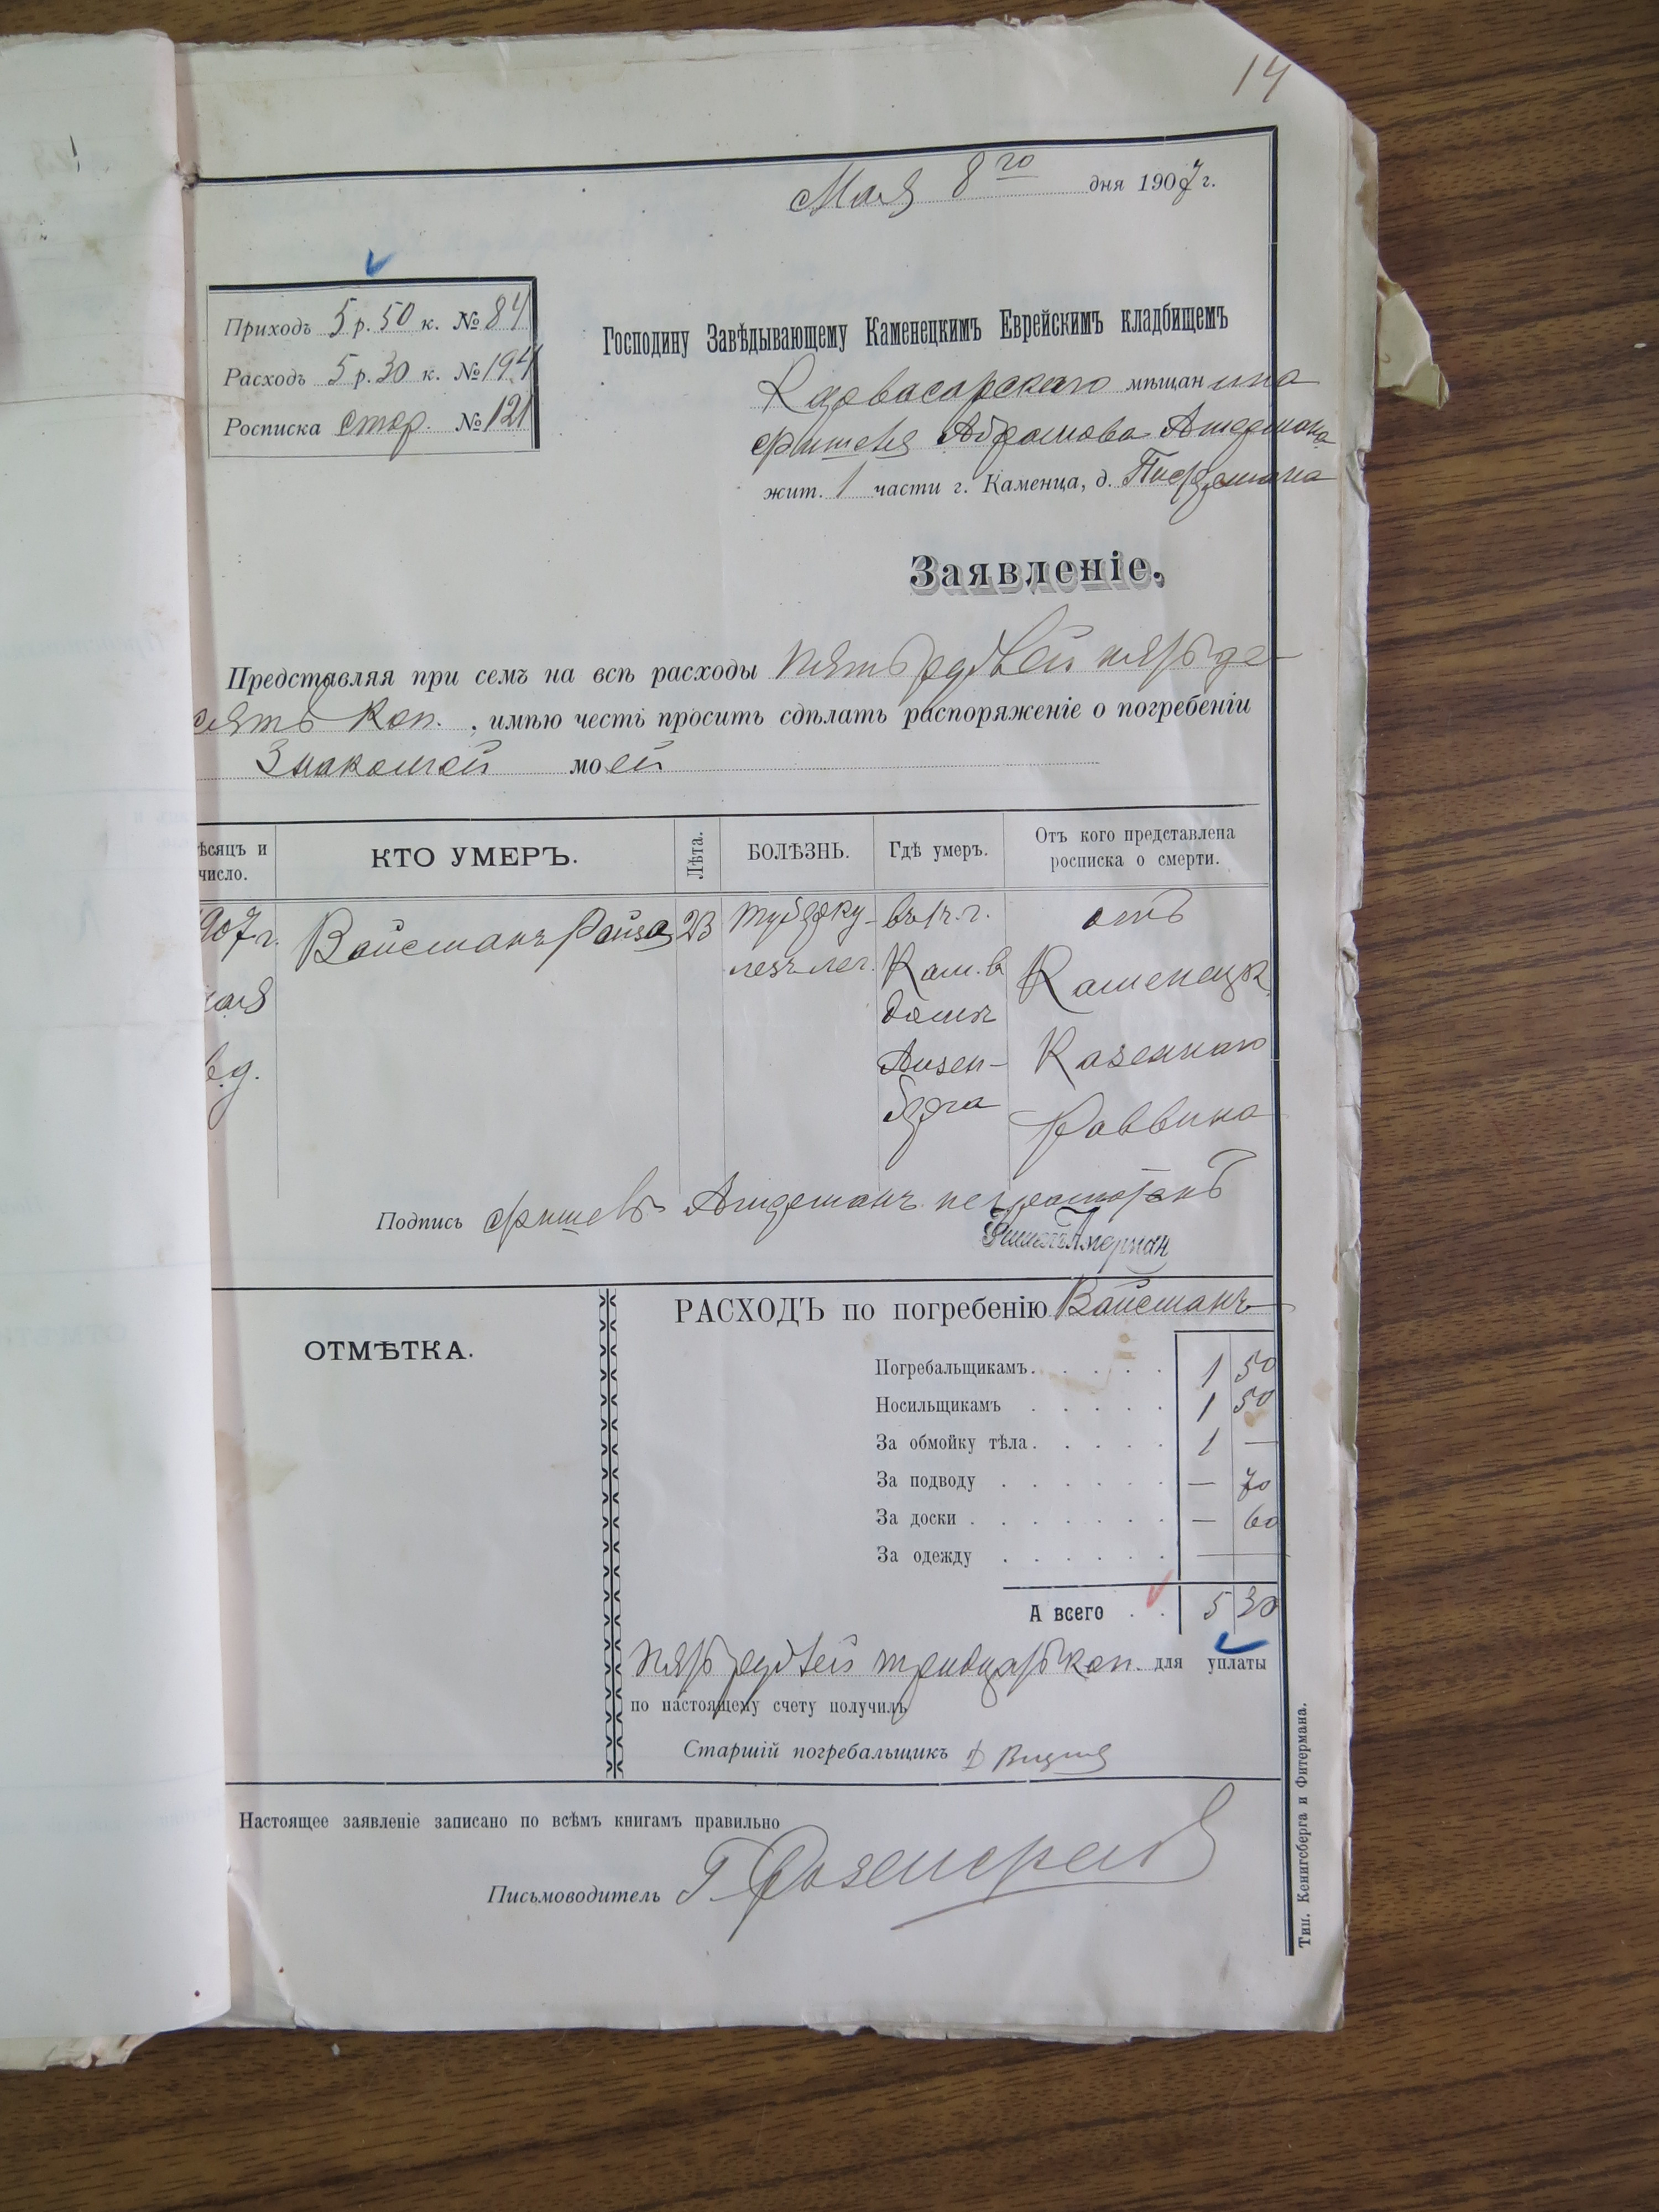 14
Мая 8го дня 1907 г.
Приходъ 5 р. 50 к. № 84
Расходъ 5 р. 30 к. № 194
Росписка стор. № 121
Господину Завѣдывающему Каменецкимъ Еврейскимъ кладбищемъ
Карвасарскаго мѣщанина
Фишеля Абрамова
жит. 1 части г. Каменца, д.
Заявленіе,
Представляя при семъ на всѣ расходы пять рублей пятьде
сятъ коп. , имѣю честь просить сдѣлать распоряженіе о погребеніи
Знакомой моей
ѣсяцъ и число.
КТО УМЕРЪ.
Лѣта.
БОЛѢЗНЬ.
Гдѣ умеръ.
Отъ кого представлена росписка о смерти.
907 г.
мая
Вайсманъ Рейза
23
туберку-
лезъ лег.
въ 1 ч. г.
Кам. в
домѣ
Айзен-
берга
отъ
Каменецк.
Казеннаго
Раввина
Подпись Фишель
РАСХОДЪ по погребенію Вайсманъ
ОТМѢТКА.
Погребальщикамъ. . . . . 1 50
Носильщикамъ . . . . . 1 50
За обмойку тѣла. . . . . 1 —
За подводу . . . . . . — 70
За доски . . . . . . . — 60
За одежду . . . . . . —
А всего . . 5 30
пять рублей тридцать коп. для уплаты
по настоящему счету получилъ
Старшій погребальщикъ
Настоящее заявленіе записано по всѣмъ книгамъ правильно
Письмоводитель
Тип. Кенигсберга и Фитермана.